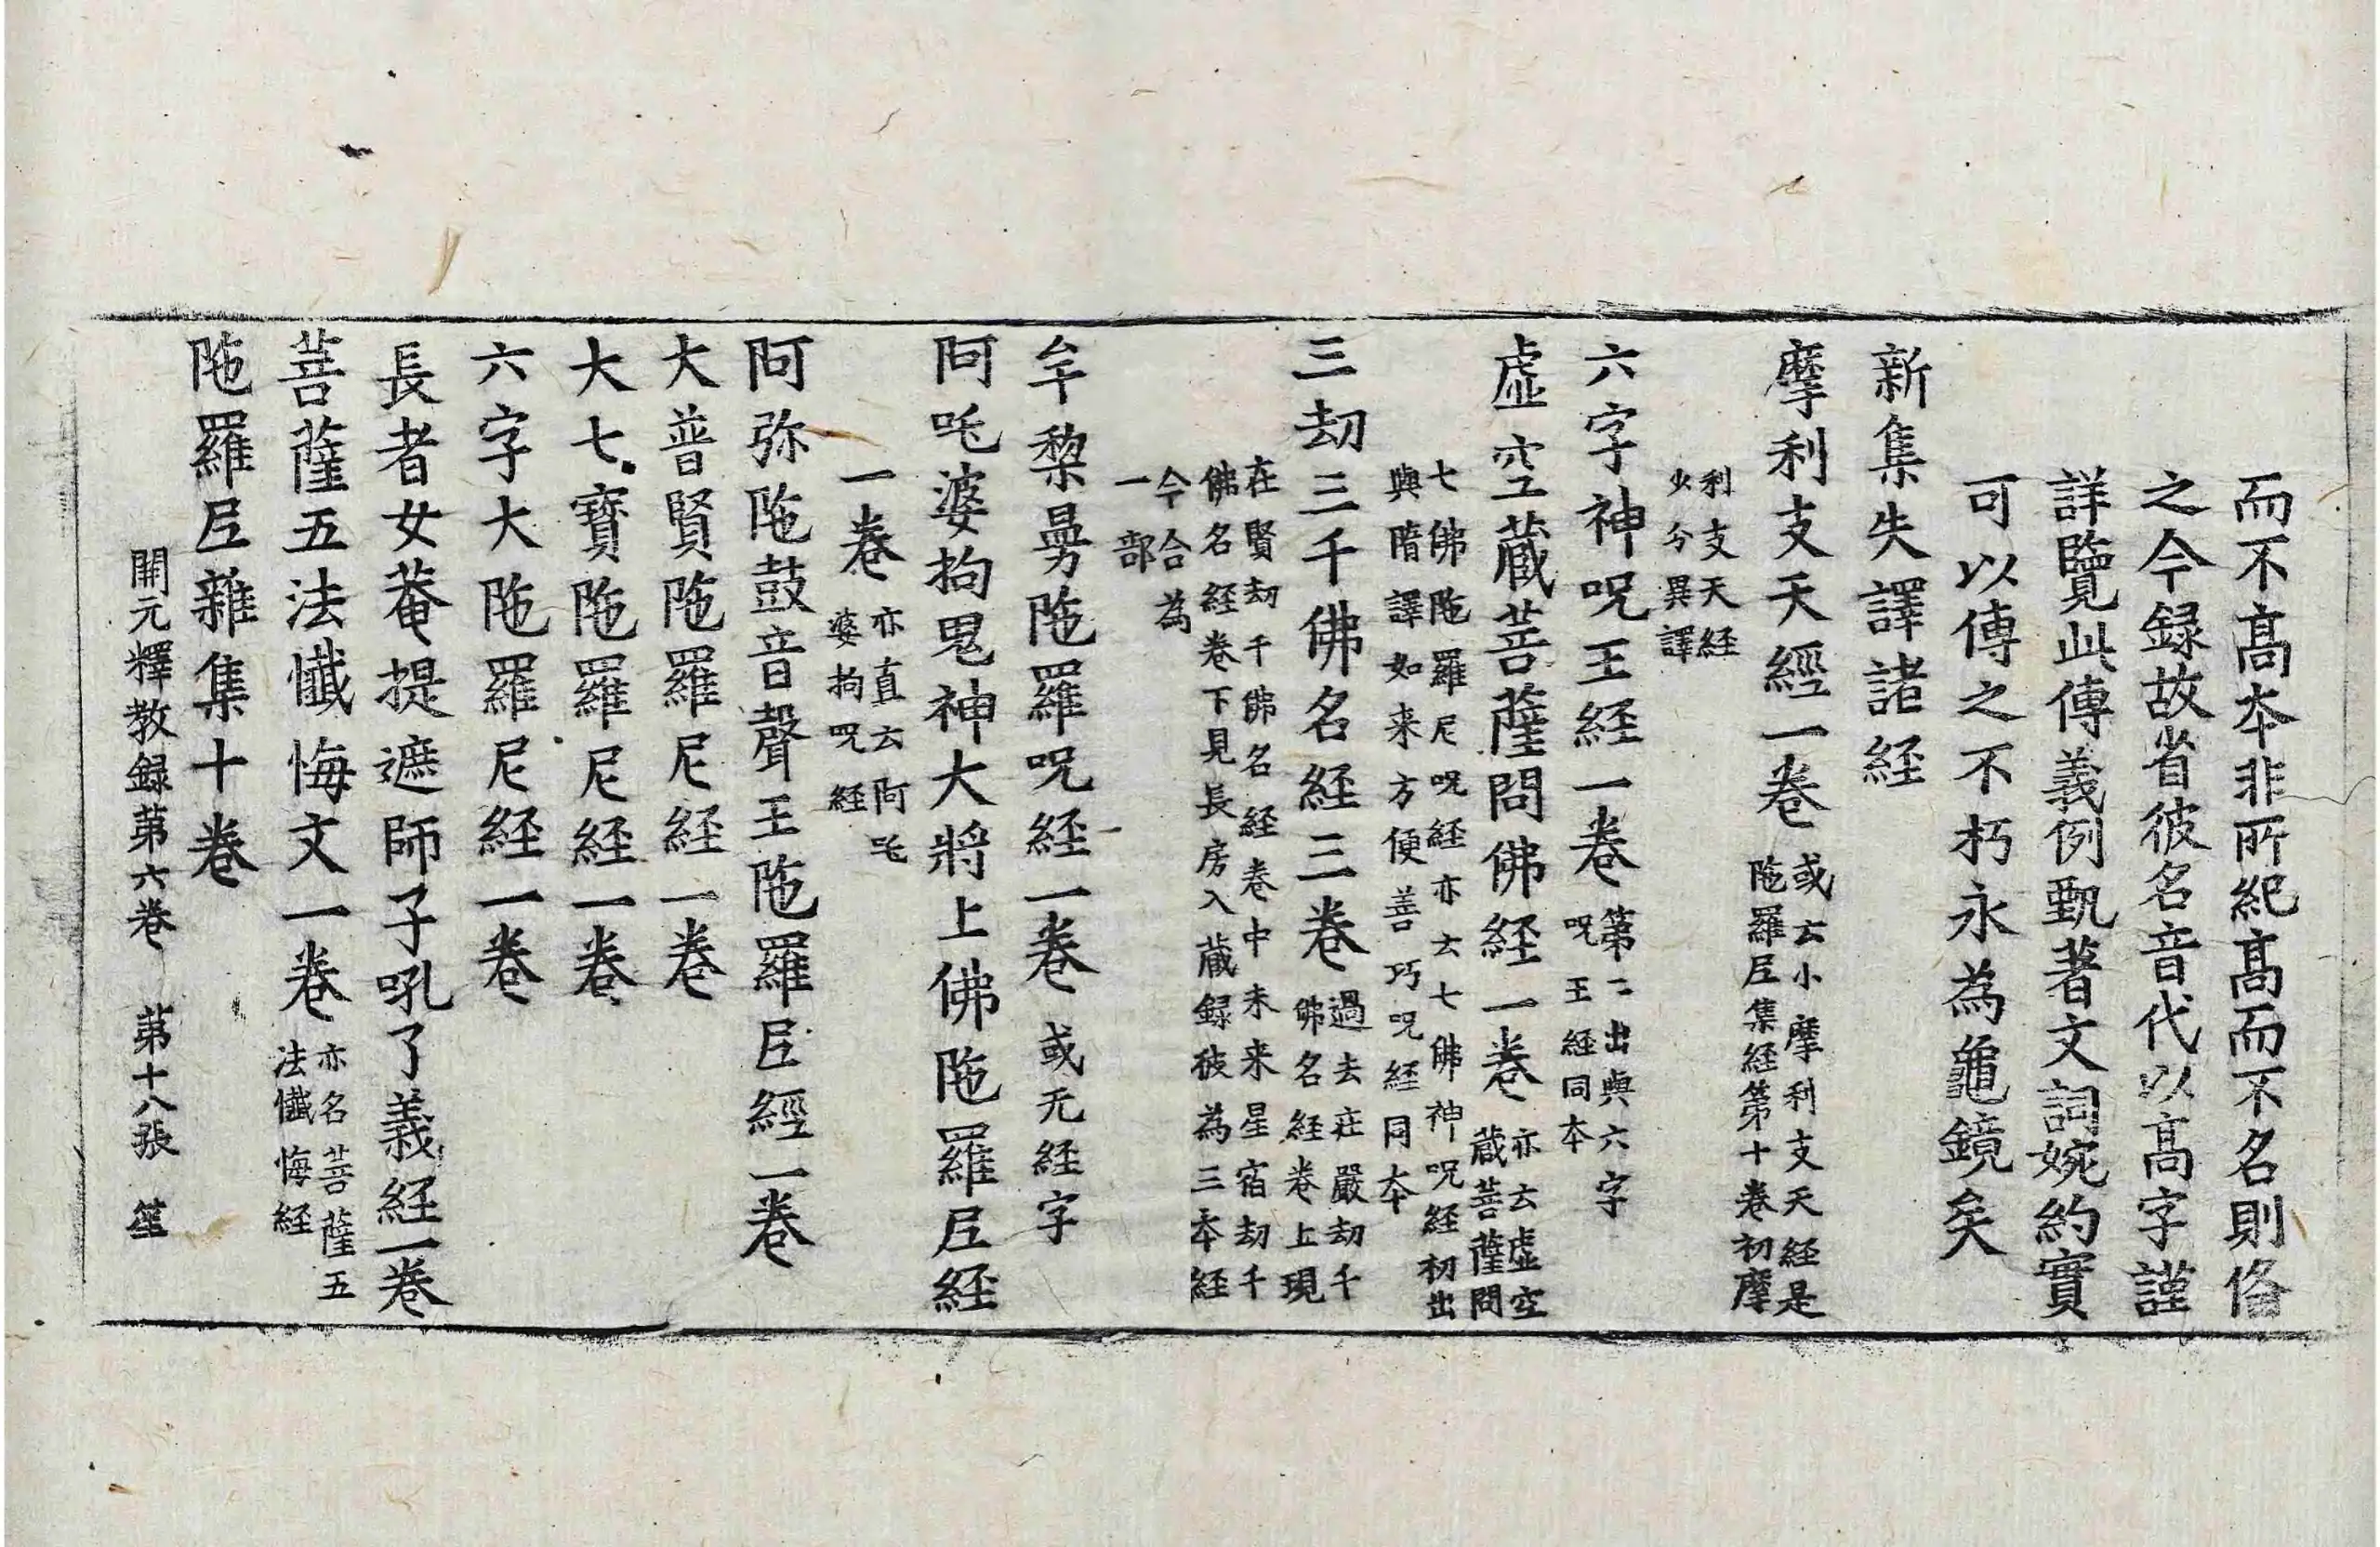 而不高本非所紀高而不名則俻
之今録故省彼名音代以高字謹
詳覽此傳義例甄著文詞婉約實
可以傳之不朽永為龜鏡矣
新集失譯諸経
摩利支天經一卷
或云小摩利支天経是
陁羅𡰱集経第十卷初摩
利支天経
少分異譯
六字神呪王経一卷
第二出與六字
呪王経同本
虛空藏菩薩問佛経一卷
亦云虛空
藏菩薩問
七佛陁羅尼呪経亦云七佛神呪経初出
與隋譯如来方便善巧呪経同本
三劫三千佛名経三卷
過去莊嚴劫千
佛名経卷上現
在賢劫千佛名経卷中未来星宿劫千
佛名経卷下見長房入藏録彼為三本経
今合為
一部
牟黎曼陁羅呪経一卷
或无経字
阿吒婆拘鬼神大將上佛陁羅𡰱経
一卷
亦直云阿吒
婆拘呪経
阿弥陁鼓音聲王陁羅𡰱經一卷
大普賢陁羅尼経一卷
大七寶陁羅尼経一卷
六字大陁羅尼経一卷
長者女菴提遮師子吼了義経一卷
菩薩五法懺悔文一卷
亦名菩薩五
法懺悔経
陁羅𡰱雜集十卷
開元釋教録第六卷　第十八張　笙